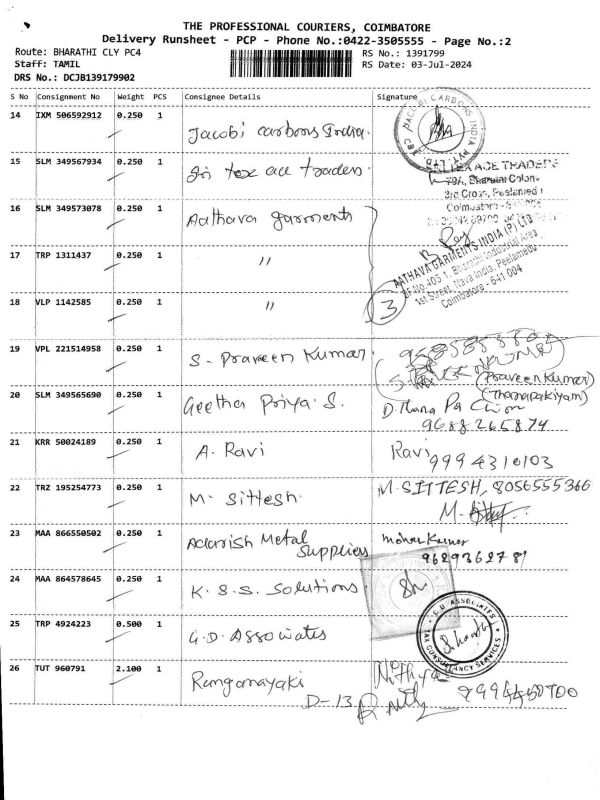 THE PROFESSIONAL COURIERS, COIMBATORE
Delivery Runsheet - PCP - Phone No.:0422-3505555 - Page No.:2
Route: BHARATHI CLY PC4 RS No.: 1391799
Staff: TAMIL RS Date: 03-Jul-2024
DRS No.: DCJB139179902
S No Consignment No Weight PCS Consignee Details Signature
14 IXM 506592912 0.250 1 Jacobi carbons India.
JACOBI CARBONS INDIA PVT. LTD.
15 SLM 349567934 0.250 1 Sri tex ace traders
TEX ACE TRADERS
79A, Bharathi Colony
3rd Cross, Peelamedu
Coimbatore
16 SLM 349573078 0.250 1 Aathava garments
17 TRP 1311437 0.250 1 "
AATHAVA GARMENTS INDIA (P) LTD
SF.No.405 1, Bharathi Industrial Area
1st Street, Nava India, Peelamedu
Coimbatore - 641 004
3
18 VLP 1142585 0.250 1 "
19 VPL 221514958 0.250 1 S. Praveen Kumar.
(Praveen Kumar)
20 SLM 349565690 0.250 1 Geetha Priya. S.
(Thanapakiyam)
9688265874
21 KRR 50024189 0.250 1 A. Ravi Ravi
9994310103
22 TRZ 195254773 0.250 1 M. Sittesh. M. SITTESH, 8056555366
23 MAA 866550502 0.250 1 Adarrish Metal Suppliers Mohan Kumar
9629362781
24 MAA 864578645 0.250 1 K.S.S. Solutions
25 TRP 4924223 0.500 1 G.D. Associates
G.D ASSOCIATES
TAX CONSULTANCY SERVICES
26 TUT 960791 2.100 1 Ranganayaki Nithya
D-13